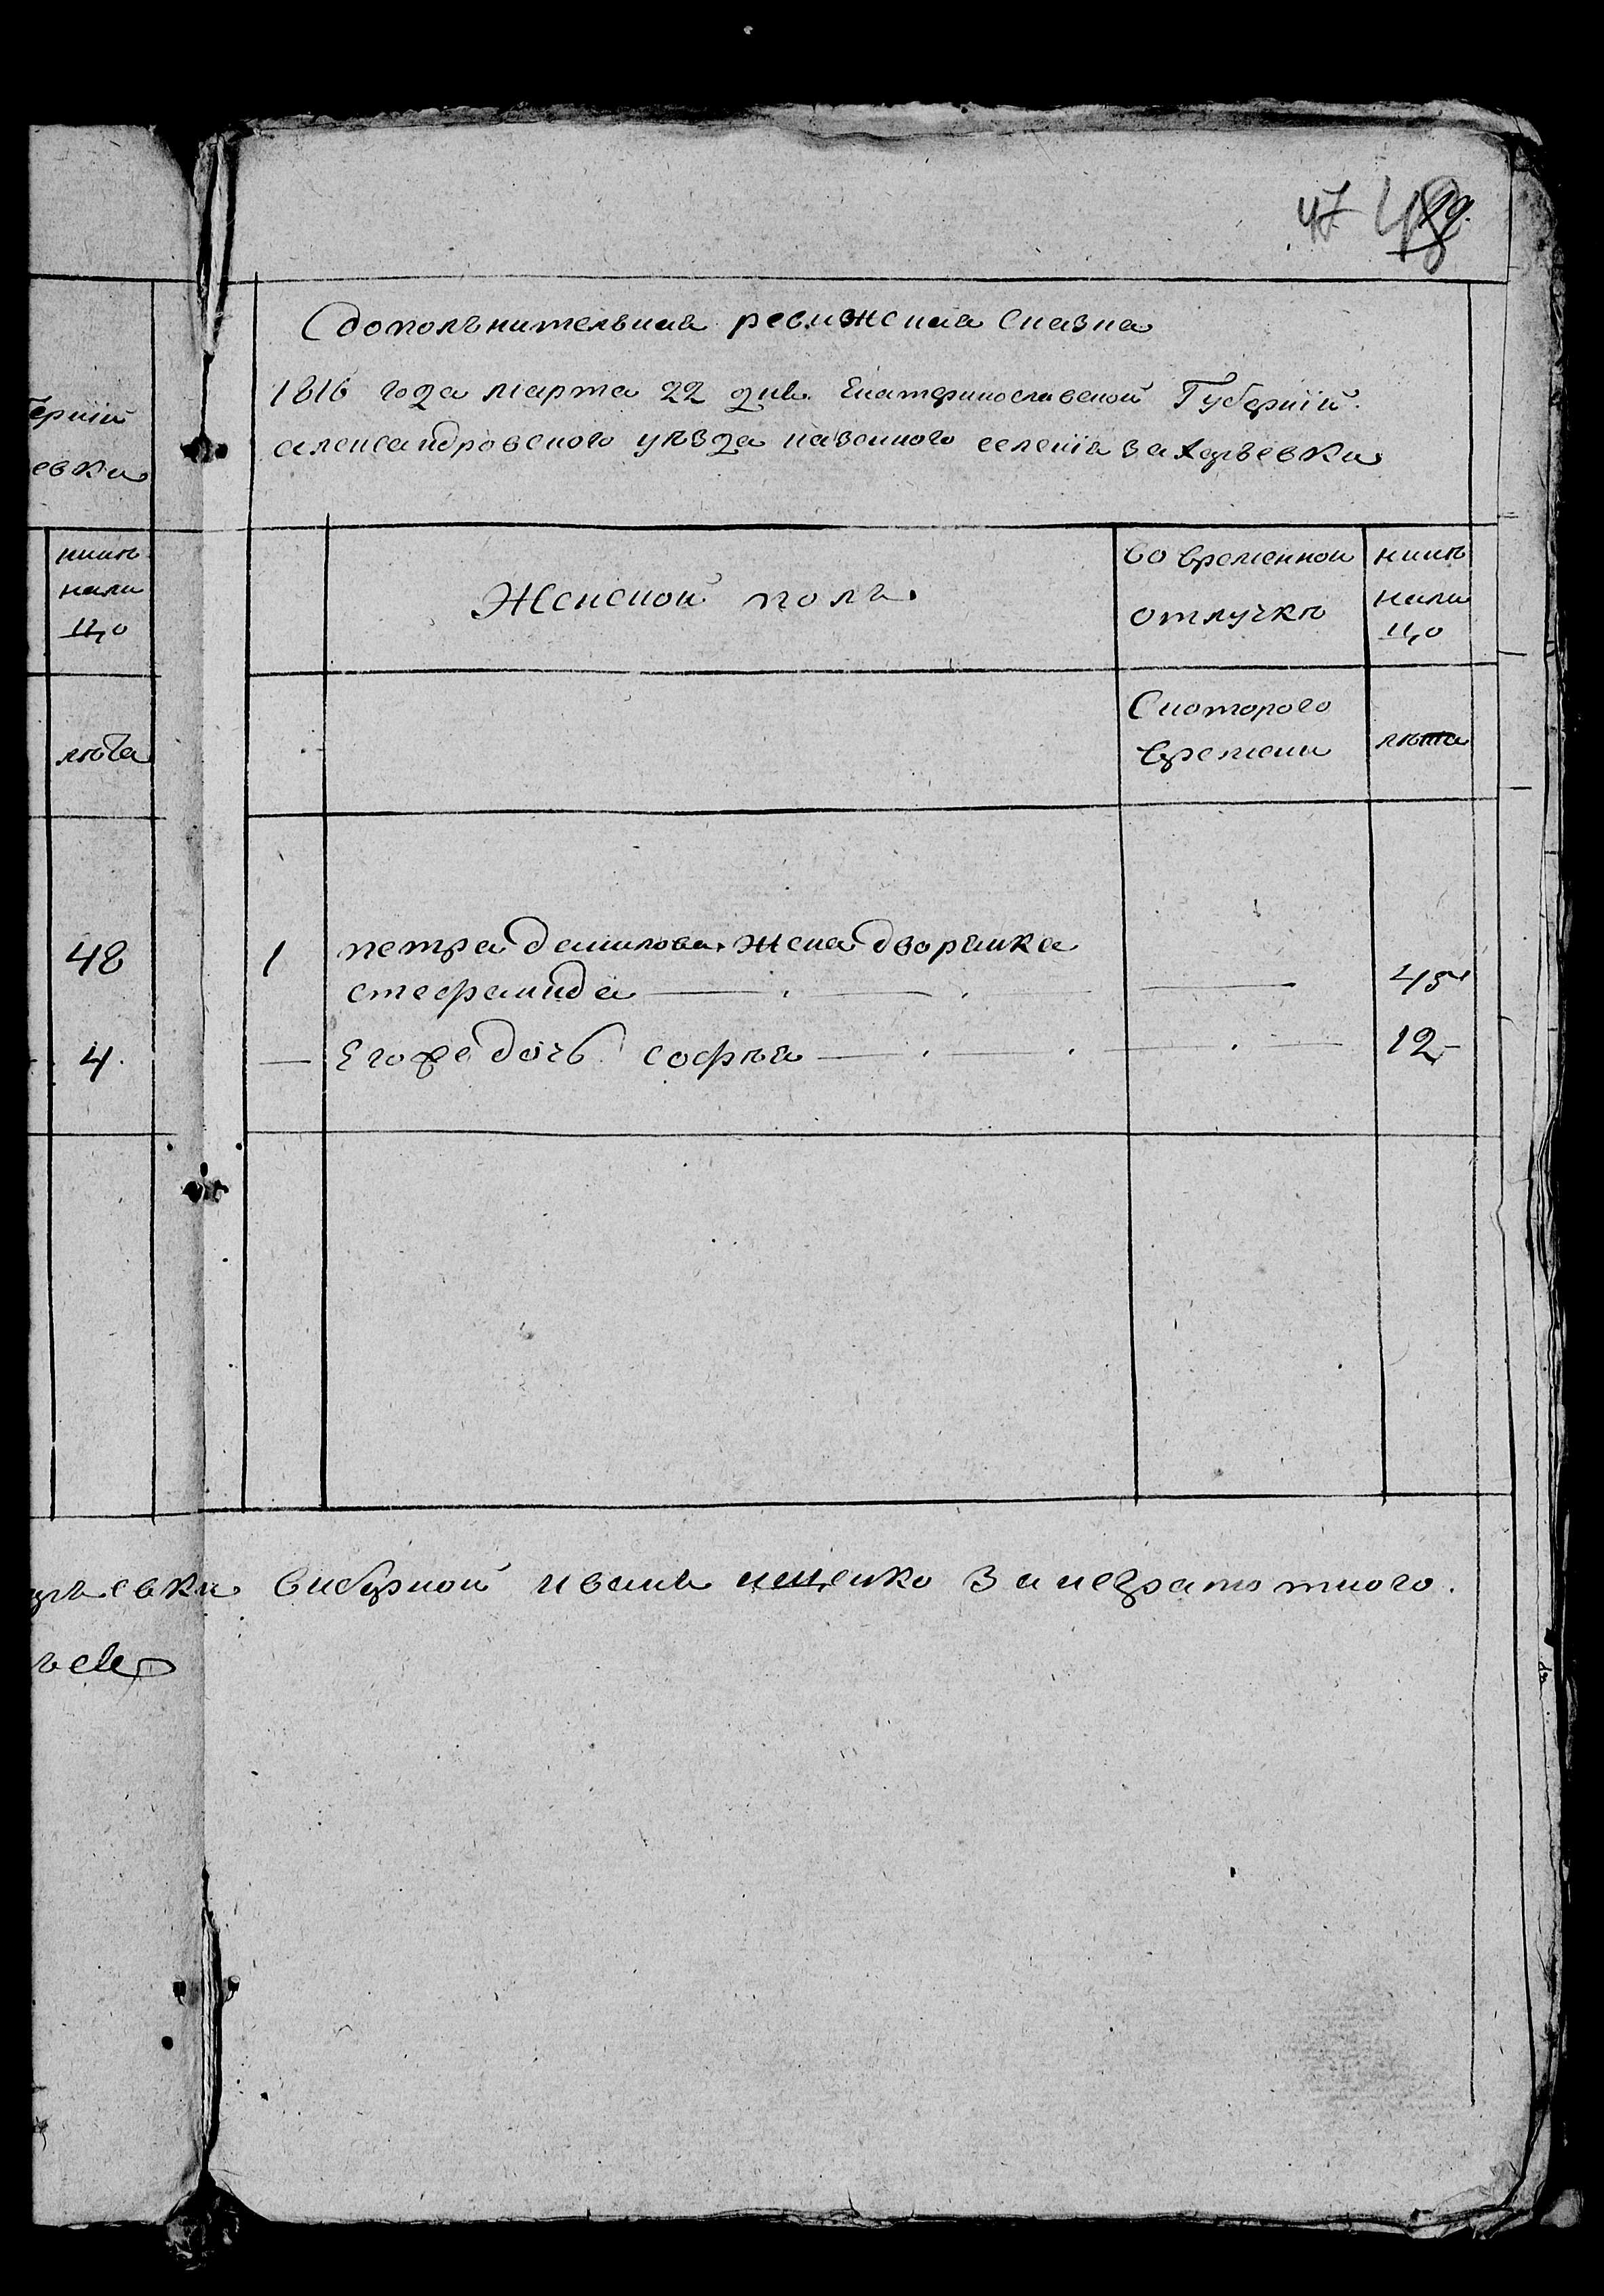 47 49
дополънительная ревижская сказка
1816 года марта 22 дня Екатеринославской Губерний
александровского уѣзда казенного селенія захаръевки
ерній
евки
нинѣ
нали
цо
лѣта
Женской полъ.
во временной
отлучкѣ
нинѣ
нали
цо
Скоторого
времени
лѣта
48
1
петра данилова жена дворянка
стефанида
45
4.
Его дочь софѣя
12
евки виборной иванъ ищенко за неграмотного.